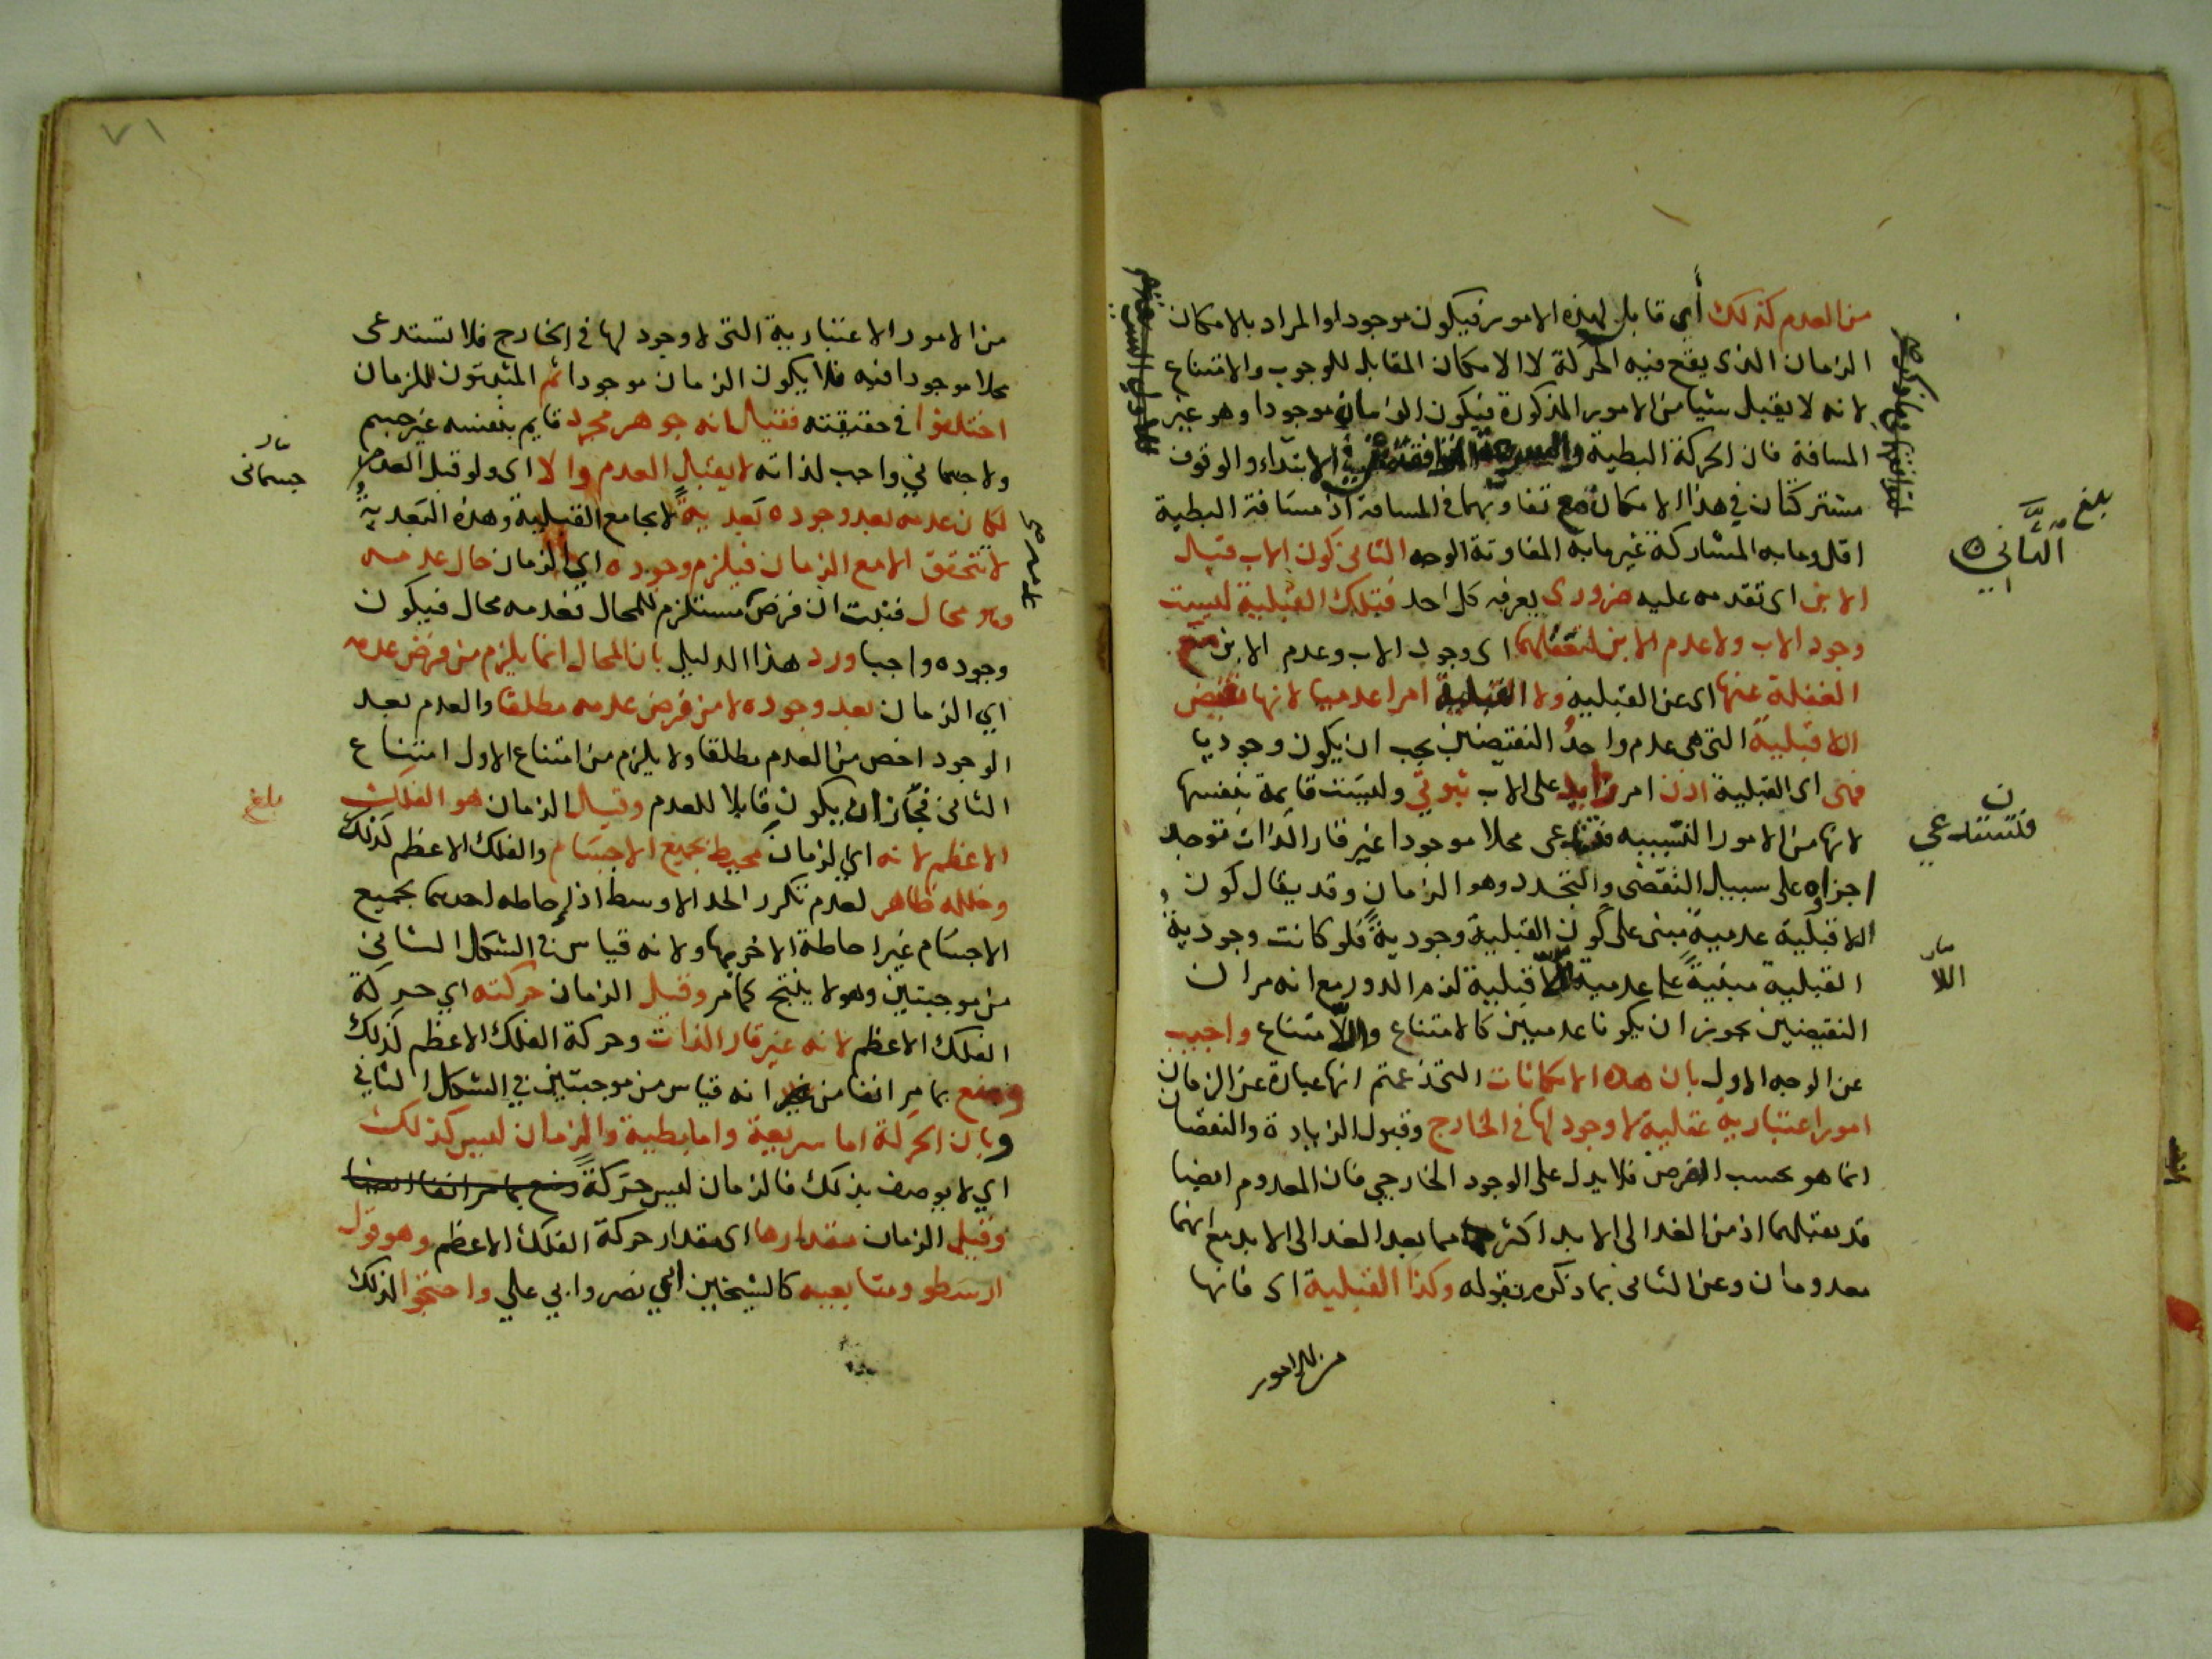 من العدم كذلك أي قابل لهذه الامور فيكون موجودا والمراد بالامكان
الزمان الذى يقع فيه الحركة لا الامكان المقابل للوجوب والامتناع
لانه لا يقبل شيا من الامور المذكورة فيكون الزمان موجودا وهو غير
المسافة فان الحركة البطية والسريعة الابتداء والوقوف
مشتركتان في هذا الامكان مع تفاوتهما في المسافة اذ مسافة البطية
اقل وما به المشاركة غير ما به المفاوتة الوجه الثانى كون الاب قبل
الابن اى تقدمه عليه ضرورى يعرفه كل احد فتلك القبلية ليست
وجود الاب ولا عدم الابن لتعقلهما اى وجود الاب وعدم الابن مع
الغفلة عنها اى عن القبلية ولا القبلية امرا عدميا لانها نقيض
اللاقبلية التى هى عدم واحد النقيضين يجب ان يكون وجوديا
فهى اى القبلية اذن امر زايد على الاب ثبوتي وليست قايمة بنفسها
لانها من الامور النسبيه فتستدعى محلا موجودا غير قار الذات توجد
اجزاوه على سبيل التقضى والتجدد وهو الزمان وقد يقال كون
اللاقبلية عدمية مبنى على كون القبلية وجودية فلو كانت وجودية
القبلية مبنية على عدمية اللاقبلية لزم الدور مع انه مر ان
النقيضين يجوز ان يكونا عدميين كالامتناع واللاامتناع واجيب
عن الوجه الاول بان هذه الامكانات التى زعمتم انها عبارة عن الزمان
امور اعتباريه عقلية لا وجود لها في الخارج وقبول الزيادة والنقصان
انما هو بحسب الفرض فلا يدل على الوجود الخارجي فان المعدوم ايضا
قد يقبلهما اذ من الغد الى الابد اكثر مما بعد الغد الى الابد مع انهما
معدومان وعن الثانى بما ذكره بقوله وكذا القبلية اى فانها
من الامور
بلغ
الثاني
فتستدعي
اللا
٧١
من الامور الاعتبارية التى لا وجود لها في الخارج فلا تستدعى
محلا موجودا فيه فلا يكون الزمان موجودا ثم المثبتون للزمان
اختلفوا في حقيقته فقيل انه جوهر مجرد قايم بنفسه غير جسم
ولا جسماني واجب لذاته لا يقبل العدم والا اى ولو قبل العدم
لكان عدمه بعد وجوده بعدية لا يجامع القبلية وهذه البعدية
لا تتحقق الا مع الزمان فيلزم وجوده اي الزمان حال عدمه
وهو محال فثبت ان فرض مستلزم للمحال فعدمه محال فيكون
وجوده واجبا ورد هذا الدليل بان المحال انما يلزم من فرض عدمه
اي الزمان بعد وجوده لا من فرض عدمه مطلقا والعدم بعد
الوجود اخص من العدم مطلقا ولا يلزم من امتناع الاول امتناع
الثانى فجاز ان يكون قابلا للعدم وقيل الزمان هو الفلك
الاعظم لانه اي الزمان محيط بجميع الاجسام والفلك الاعظم كذلك
وخلله ظاهر لعدم تكرر الحد الاوسط اذ احاطه احدهما بجميع
الاجسام غير احاطة الاخر بها ولانه قياس في الشكل الثاني
من موجبتين وهو لا ينتج كما مر وقيل الزمان حركته اي حركة
الفلك الاعظم لانه غير قار الذات وحركة الفلك الاعظم كذلك
ومنع بما مر انفا من انه قياس من موجبتين في الشكل الثاني
وبان الحركة اما سريعة واما بطية والزمان ليس كذلك
اي لا يوصف بذلك فالزمان ليس حركة ومنع بما مر انفا ايضا
وقيل الزمان مقدارها اى مقدار حركة الفلك الاعظم وهو قول
ارسطو ومتابعيه كالشيخين ابي نصر وابي علي واحتجوا لذلك
جسمانى
عدمه صح
بلغ